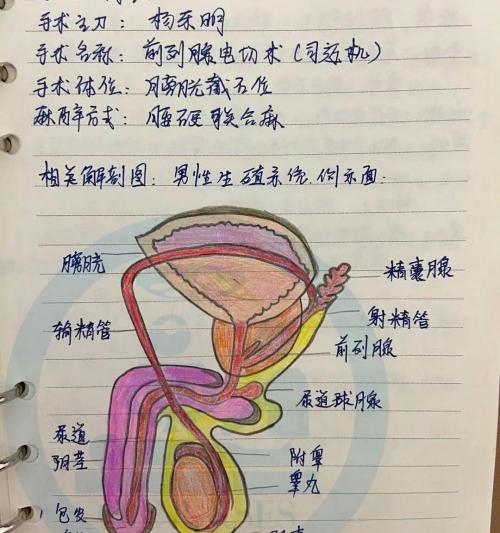 手术主刀:
手术名称: 前列腺电切术(司冠机)
手术体位: 膀胱截石位
麻醉方式: 腰硬联合麻
相关解剖图: 男性生殖系统.侧示面:
膀胱
精囊腺
射精管
输精管
前列腺
尿道球腺
尿道
阴茎
附睾
睾丸
包皮